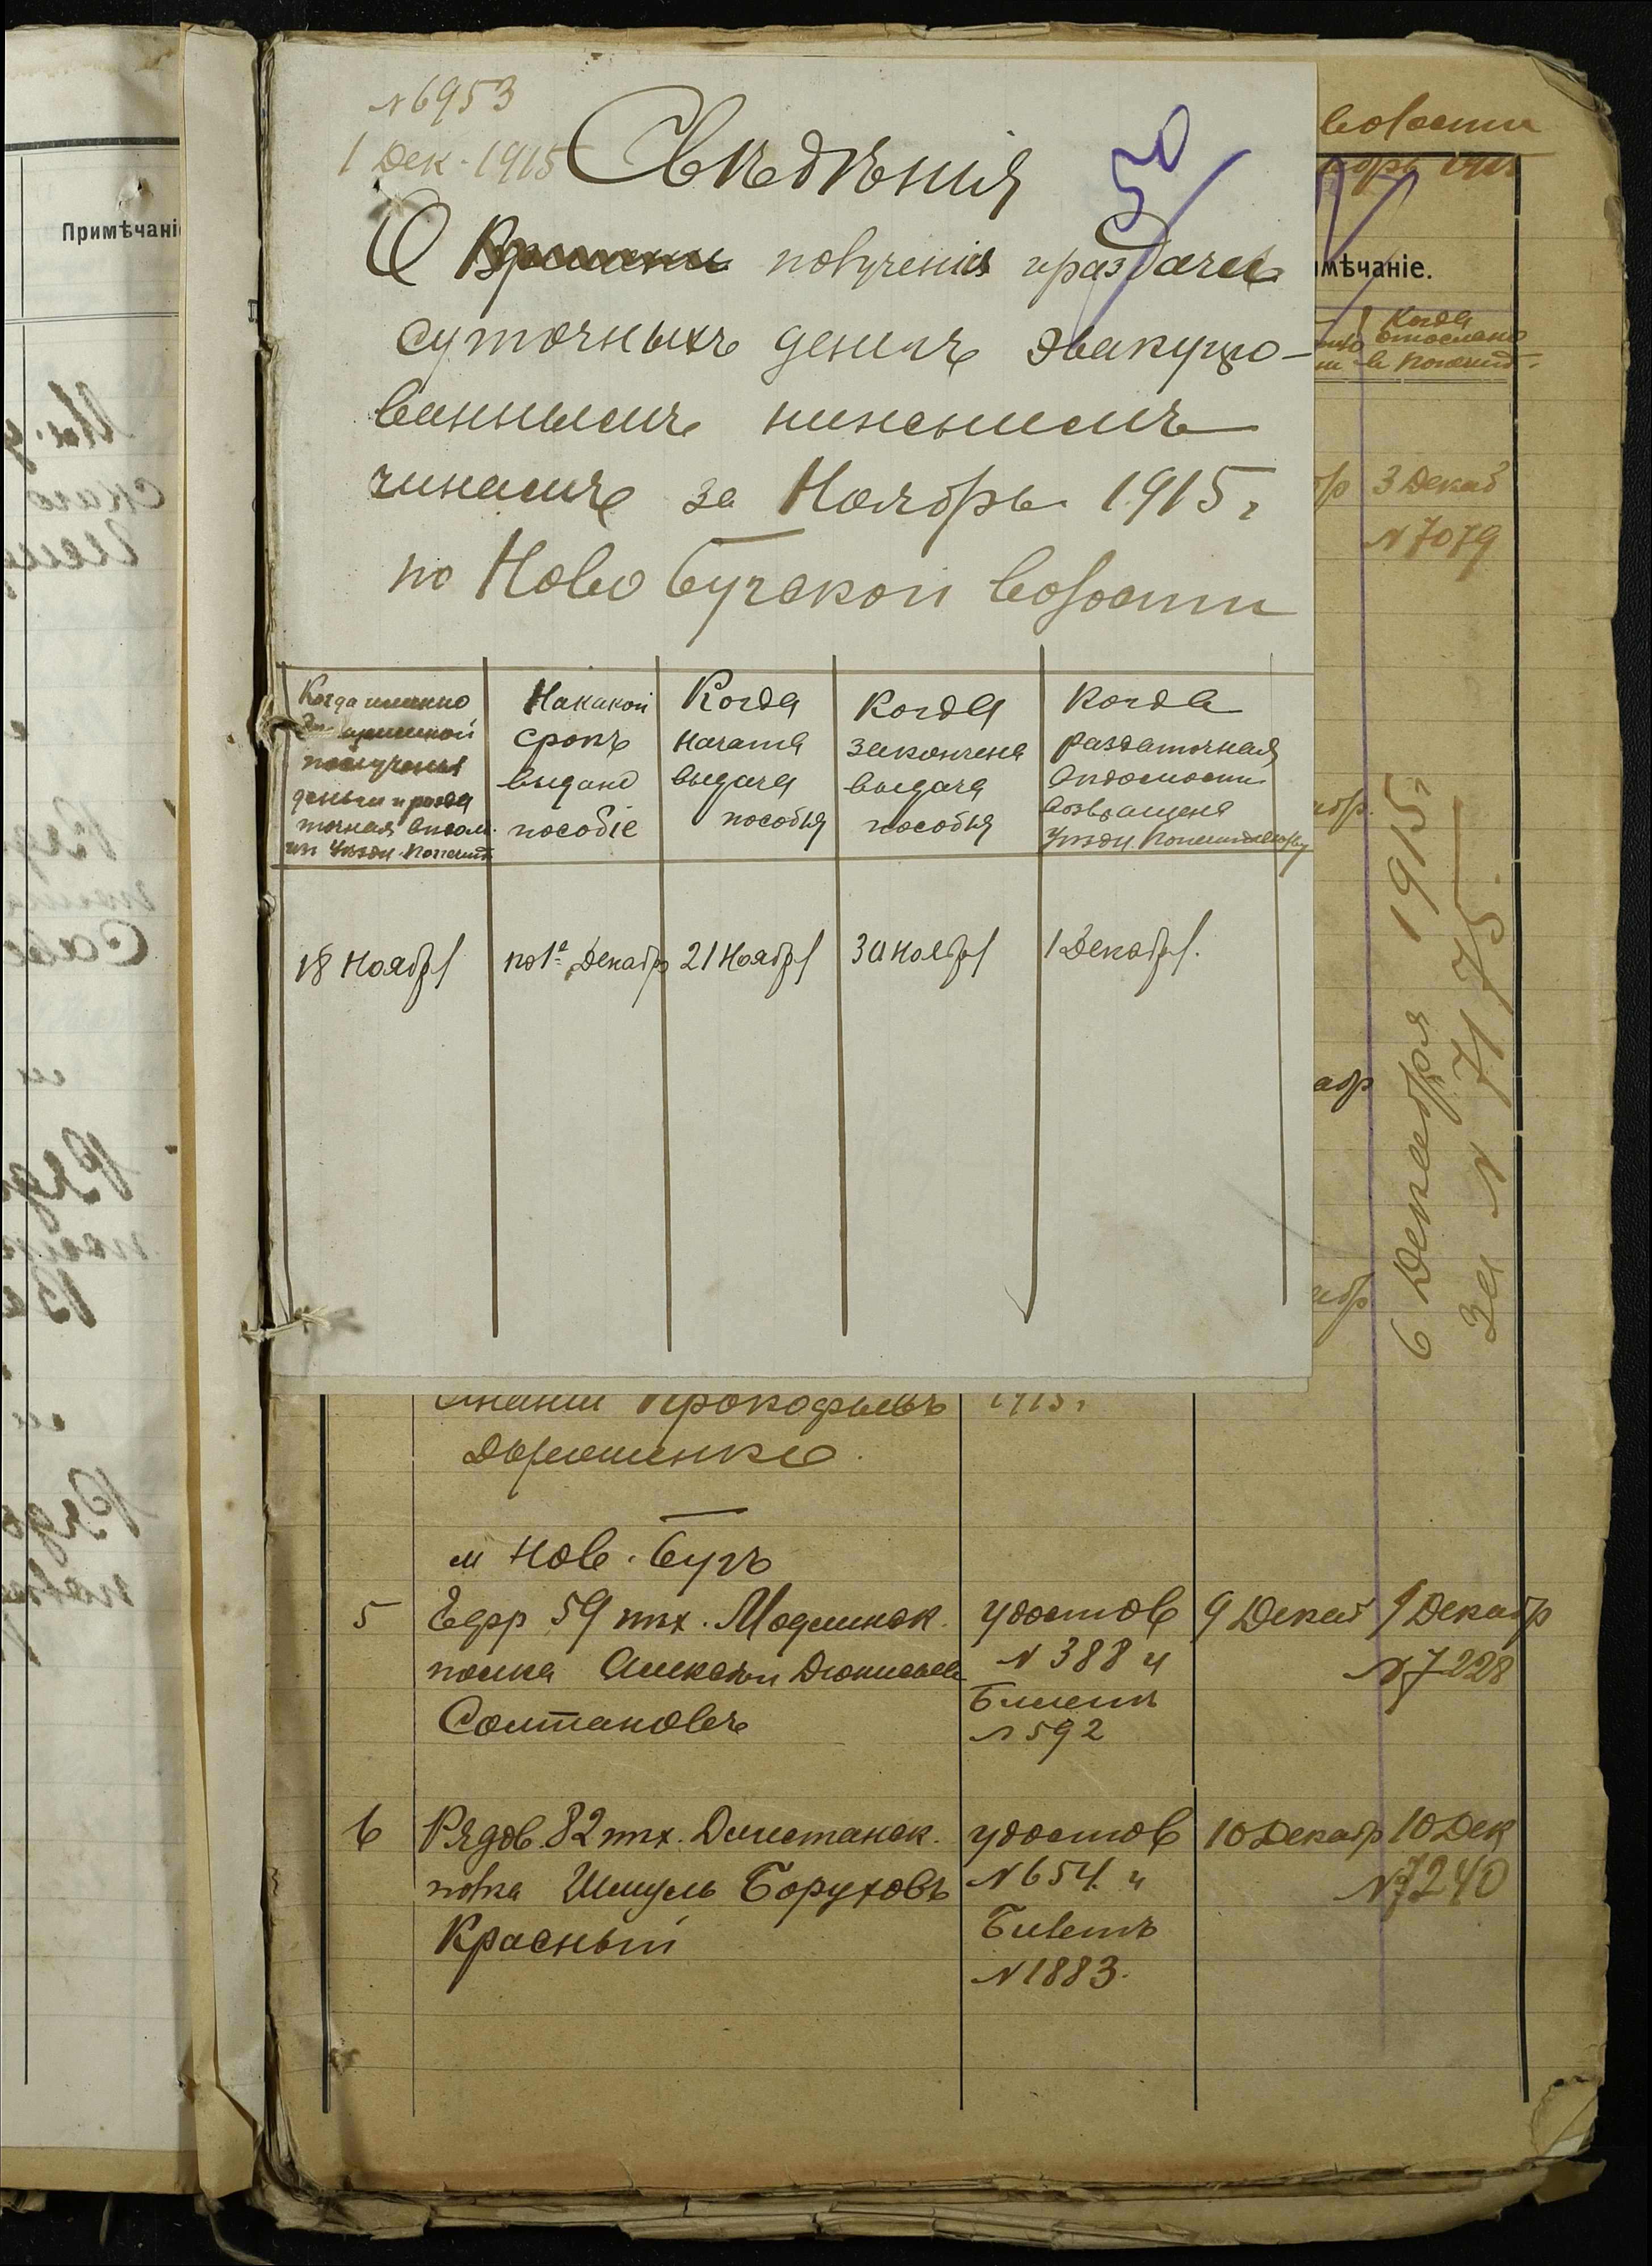 № 6953
1 Дек. 1915
Свѣдѣнія
50
О Времени полученія и раздачи
суточныхъ денегъ эвакуиро-
ваннымъ нижнимъ
чинамъ за Ноябрь 1915 г
по Ново Бугской волости
Когда именно
получены
деньги и разда
точная вѣдом.
изъ Уѣздн. Попечит
На какой
срокъ
выдано
пособіе
Когда
начата
выдача
пособія
Когда
закончена
выдача
пособія
Когда
раздаточная
вѣдомость
возвращена
Уѣздн. Попечительству
18 Ноября
по 1е Декабр
21 Ноября
30 Ноября
1 Декабря.
волости
ябрь 1915
мѣчаніе.
Когда
отослано
въ Попечит.
3 Декаб
№ 7079
6 Декабря 1915 г
За № 7175.
Прокофьевъ
1915 г
Дорошенко.
м Нов. Бугъ
5
Ефр 59 пѣх. Модлинск.
полка Алексѣй Діонисьев
Солтановъ
удостов
№ 388 и
Билетъ
№ 592
9 Декаб
9 Декабр
№ 7228
6
Рядов. 82 пѣх. Дагестанск.
полка Шмуль Боруховъ
Красный
удостов
№ 654 и
Билетъ
№ 1883.
10 Декабр
10 Дек
№ 7240
Примѣчані